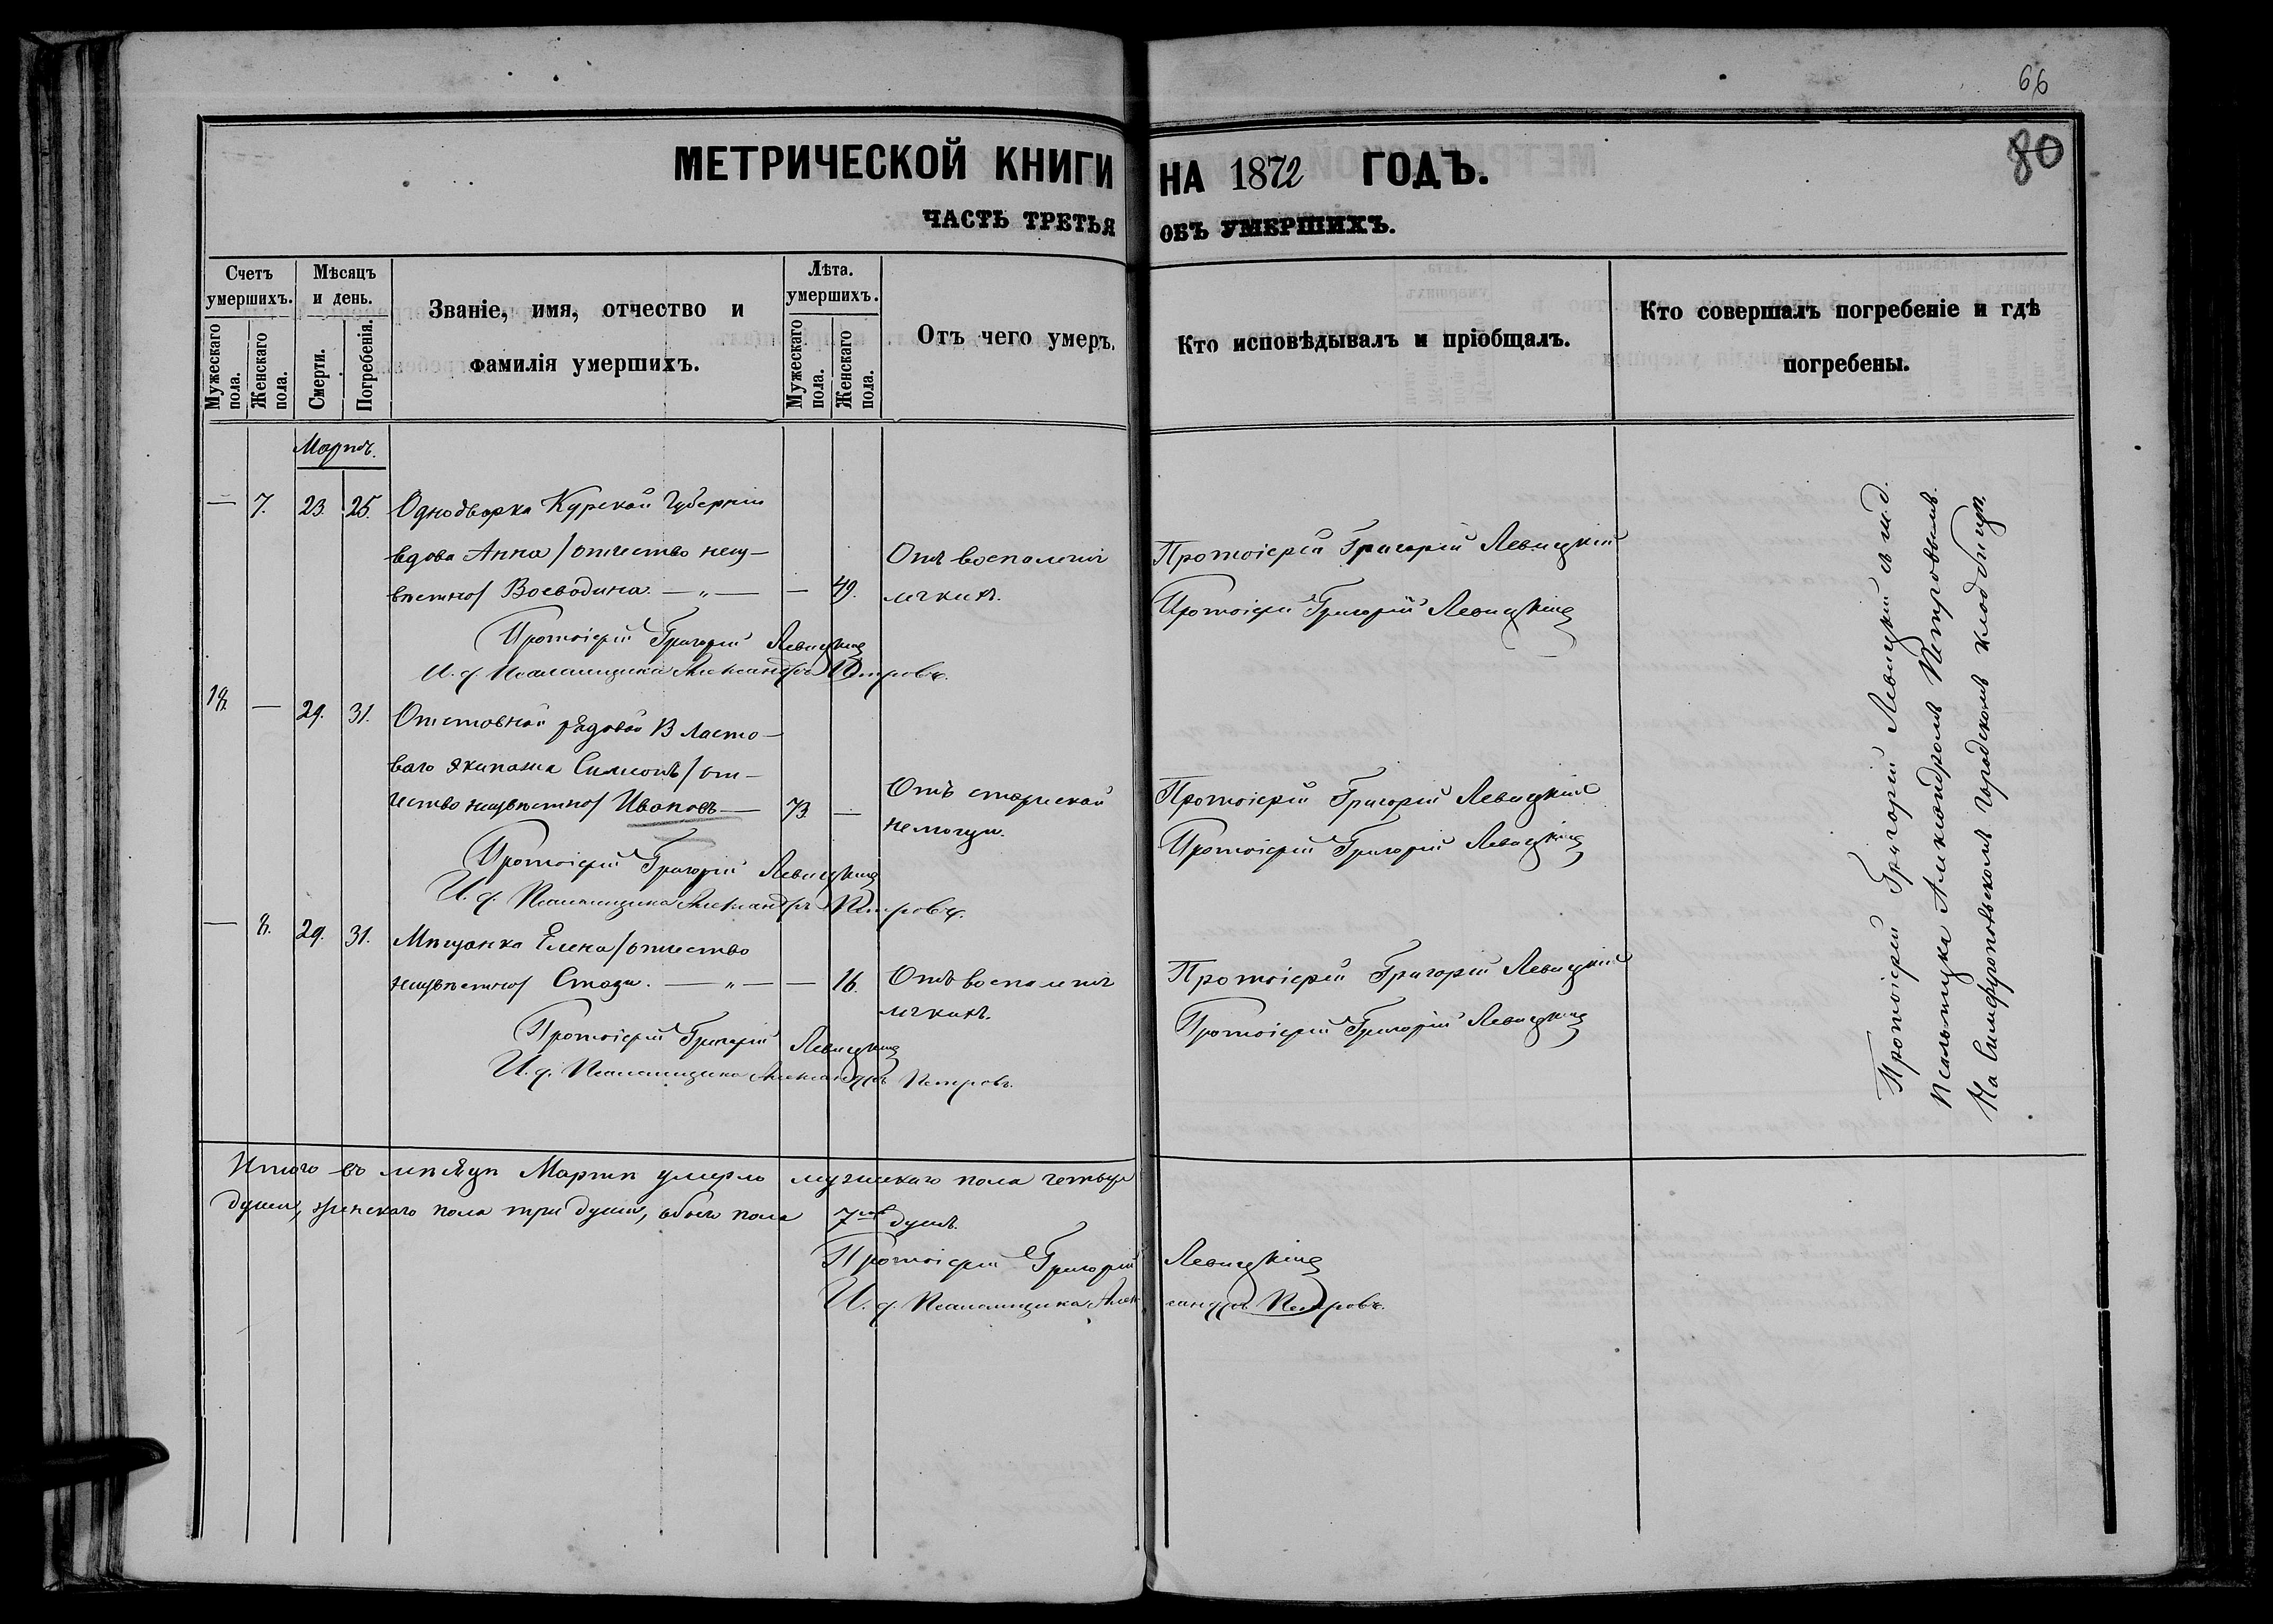 66
80
МЕТРИЧЕСКОЙ КНИГИ НА 1872 ГОДЪ.
ЧАСТЬ ТРЕТЬЯ ОБЪ УМЕРШИХЪ.
Счетъ умершихъ.
Мужескаго пола.
Женскаго пола.
Мѣсяцъ и день.
Смерти.
Погребенія.
Званіе, имя, отчество и
фамилія умершихъ.
Лѣта умершихъ.
Мужескаго пола.
Женскаго пола.
Отъ чего умеръ.
Кто исповѣдывалъ и пріобщалъ.
Кто совершалъ погребеніе и гдѣ
погребены.
Мартъ.
— 7. 23. 25. Однодворка Курской Губерніи
вдова Анна /отчество неиз-
вѣстно/ Воеводина. — „ — — 49.
Отъ воспаленія
легкихъ.
Протоіерей Григорій Левицкій
Протоіерей Григорій Левицкій
Протоіерей Григорій Левицкій
И. д. Псаломщика Александръ Петровъ.
18. — 29. 31. Отставной рядовой 13 Ласто-
ваго экипажа Симеонъ /от-
чество неизвѣстно/ Ивановъ — 73. —
Отъ старческой
немощи.
Протоіерей Григорій Левицкій
Протоіерей Григорій Левицкій
Протоіерей Григорій Левицкій
И. д. Псаломщика Александръ Петровъ.
— 8. 29. 31. Мѣщанка Елена /отчество
неизвѣстно/ — „ — — 16.
Отъ воспаленія
легкихъ.
Протоіерей Григорій Левицкій
Протоіерей Григорій Левицкій
Протоіерей Григорій Левицкій
И. д. Псаломщика Александръ Петровъ.
Протоіерей Григорій Левицкій съ и. д.
Псаломщика Александромъ Петровымъ.
На Симферопольскомъ городскомъ кладбищѣ.
Итого въ мѣсяцѣ Мартѣ умерло мужескаго пола четыре
души, женскаго пола три души, обоего пола 7 душъ.
Протоіерей Григорій Левицкій
И. д. Псаломщика Александръ Петровъ.